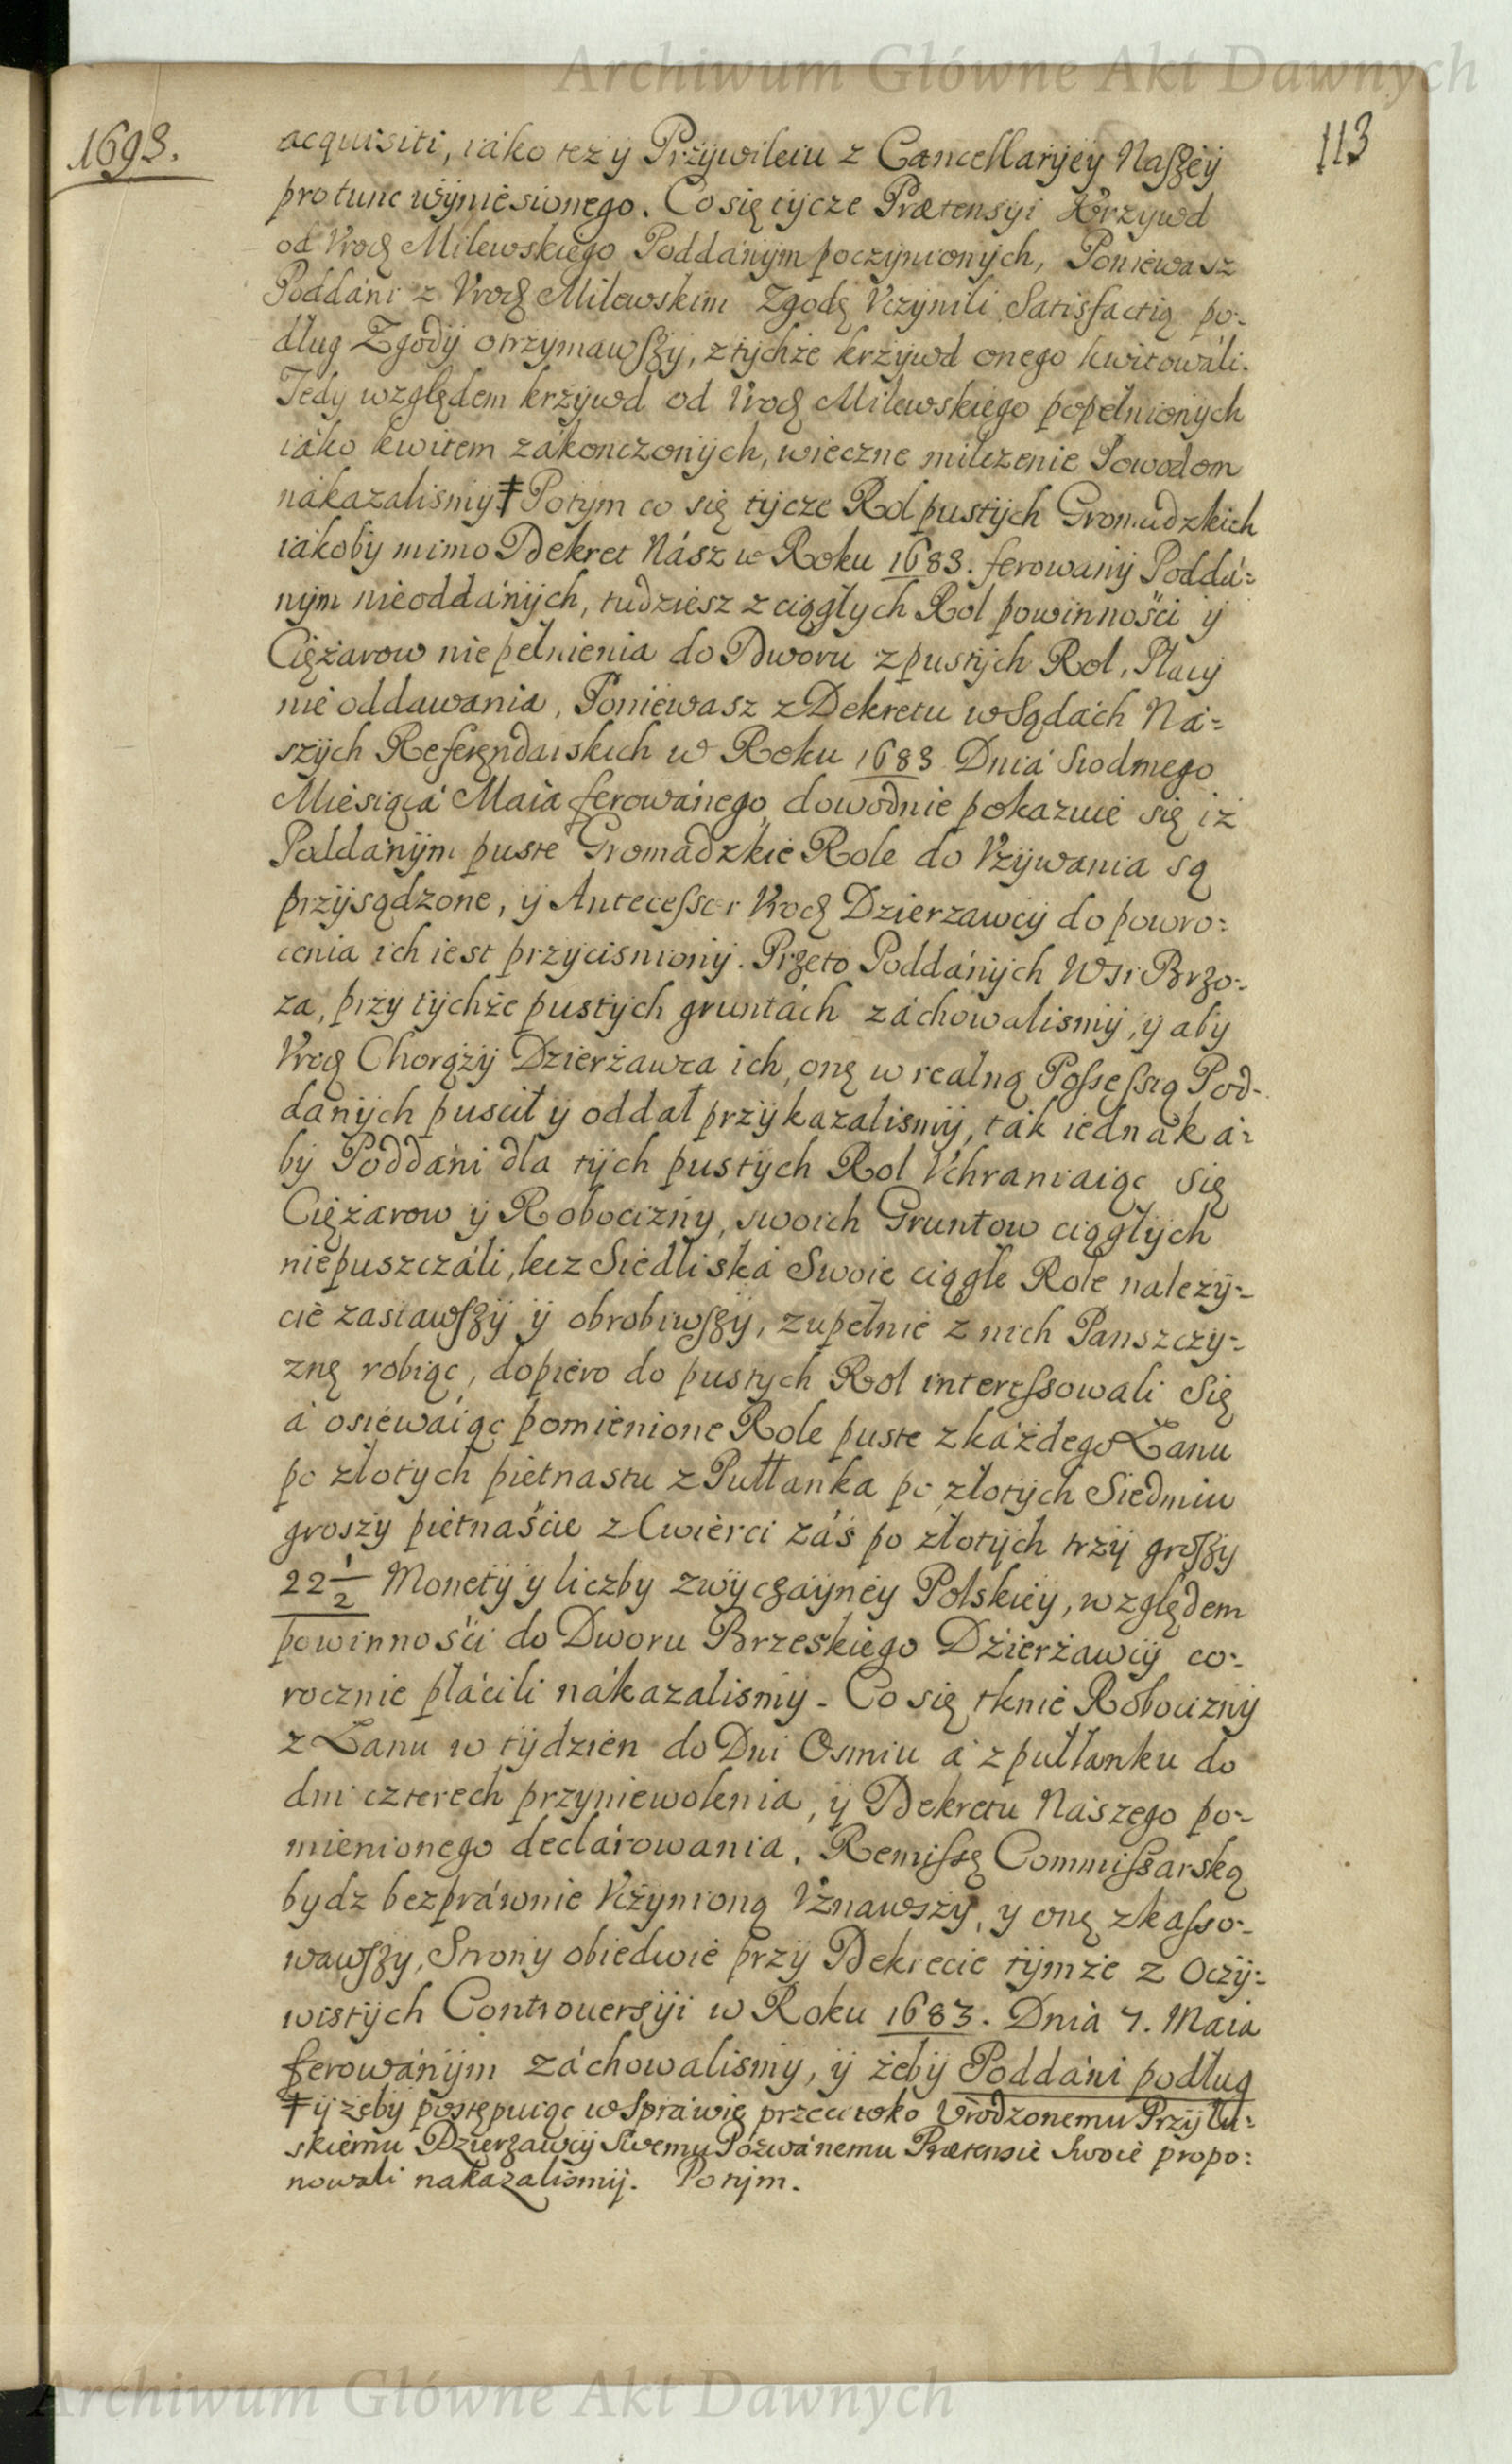 Archiwum Główne Akt Dawnych
1693.
113
acquisiti, iáko też y Przywileiu z Cancellaryey Naszéy
pro tunc wyniesionego. Co się tycze Prætensyi krzywd
od Urodz Milewskiego Poddánym poczynionych, Ponieważ
Poddáni z Urodz Milewskim Zgodę Uczynili Satisfactią po-
dług Zgody otrzymawszy, z tychże krzywd onego kwitowáli.
Tedy względem krzywd od Urodz Milewskiego popełnionych
iáko kwitem zákonczonych, wieczne milczenie Powodom
nákazalismy ‡ Potym co się tycze Rol pustych Gromadzkich
iakoby mimo Dekret Nász w Roku 1683. ferowany Poddá-
nym nieoddánych, tudziesz z ciągłych Rol powinności y
Ciężarow niepełnienia do Dworu z pustych Rol, Płacy
nie oddawania, Poniewasz z Dekretu w Sądách Ná-
szych Referendarskich w Roku 1683 Dniá siodmego
Miesiącá Maia ferowánego, dowodnie pokazuie się iż
Poddánym puste Gromadzkie Role do Używania są
przysądzone, y Antecessor Urodz Dzierzawcy do powro-
cenia ich iest przycisniony. Przeto Poddánych Wsi Brzo-
za, przy tychże pustych gruntách záchowalismy, y aby
Urodz Chorąży Dzierżawca ich, onę w realną Possessią Pod-
danych puscił y oddał przykazalismy, ták iednak á-
by Poddáni dla tych pustych Rol Uchraniaiąc się
Ciężarow y Robocizny, swoich Gruntow ciągłych
niepuszczáli, lecz Siedliská Swoie ciągłe Role należy-
cie zasiawszy y obrobiwszy, zupełnie z nich Panszczy-
znę robiąc, dopiero do pustych Rol interessowali Się
á osiewaiąc pomienione Role puste z káżdego Łanu
po złotych pietnastu z Pułłanka po złotych Siedmiu
groszy pietnaście z Cwierci záś po złotych trzy groszy
22 1/2 Monety y liczby zwyczayney Polskiey, względem
powinności do Dworu Brzeskiego Dzierżawcy co-
rocznie płácili nákazalismy. Co się tknie Robocizny
z Łanu w tydzien do Dni Osmiu á z pułłanku do
dni czterech przyniewolenia, y Dekretu Nászego po-
mienionego declárowania, Remissę Commissarską
bydz bezpráwnie Uczynioną Uznawszy, y onę zkasso-
wawszy, Strony obiedwie przy Dekrecie tymże z Oczy-
wistych Controuersyi w Roku 1683. Dniá 7. Maia
ferowánym záchowalismy, y żeby Poddáni podług
‡ y żeby postępuiąc w Spráwie przeciwko Urodzonemu Przyłu-
skiemu Dzierzawcy Swemu Pozwánemu Prætensie Swoie propo-
nowali nakazalismy. Potym.
Archiwum Główne Akt Dawnych